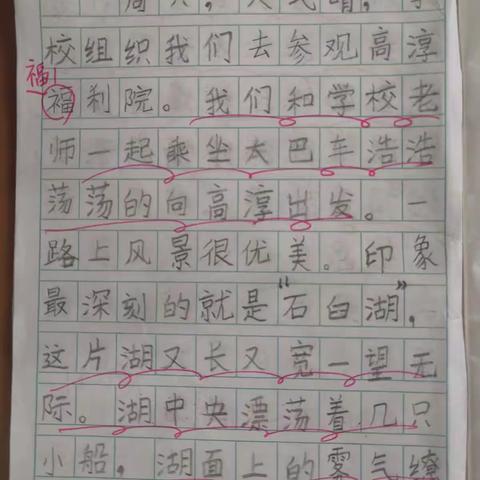 周六，天气晴，学
校组织我们去参观高淳
福
福利院。我们和学校老
师一起乘坐大巴车浩浩
荡荡的向高淳出发。一
路上风景很优美。印象
最深刻的就是“石臼湖”，
这片湖又长又宽一望无
际。湖中央漂荡着几只
小船，湖面上的雾气缭